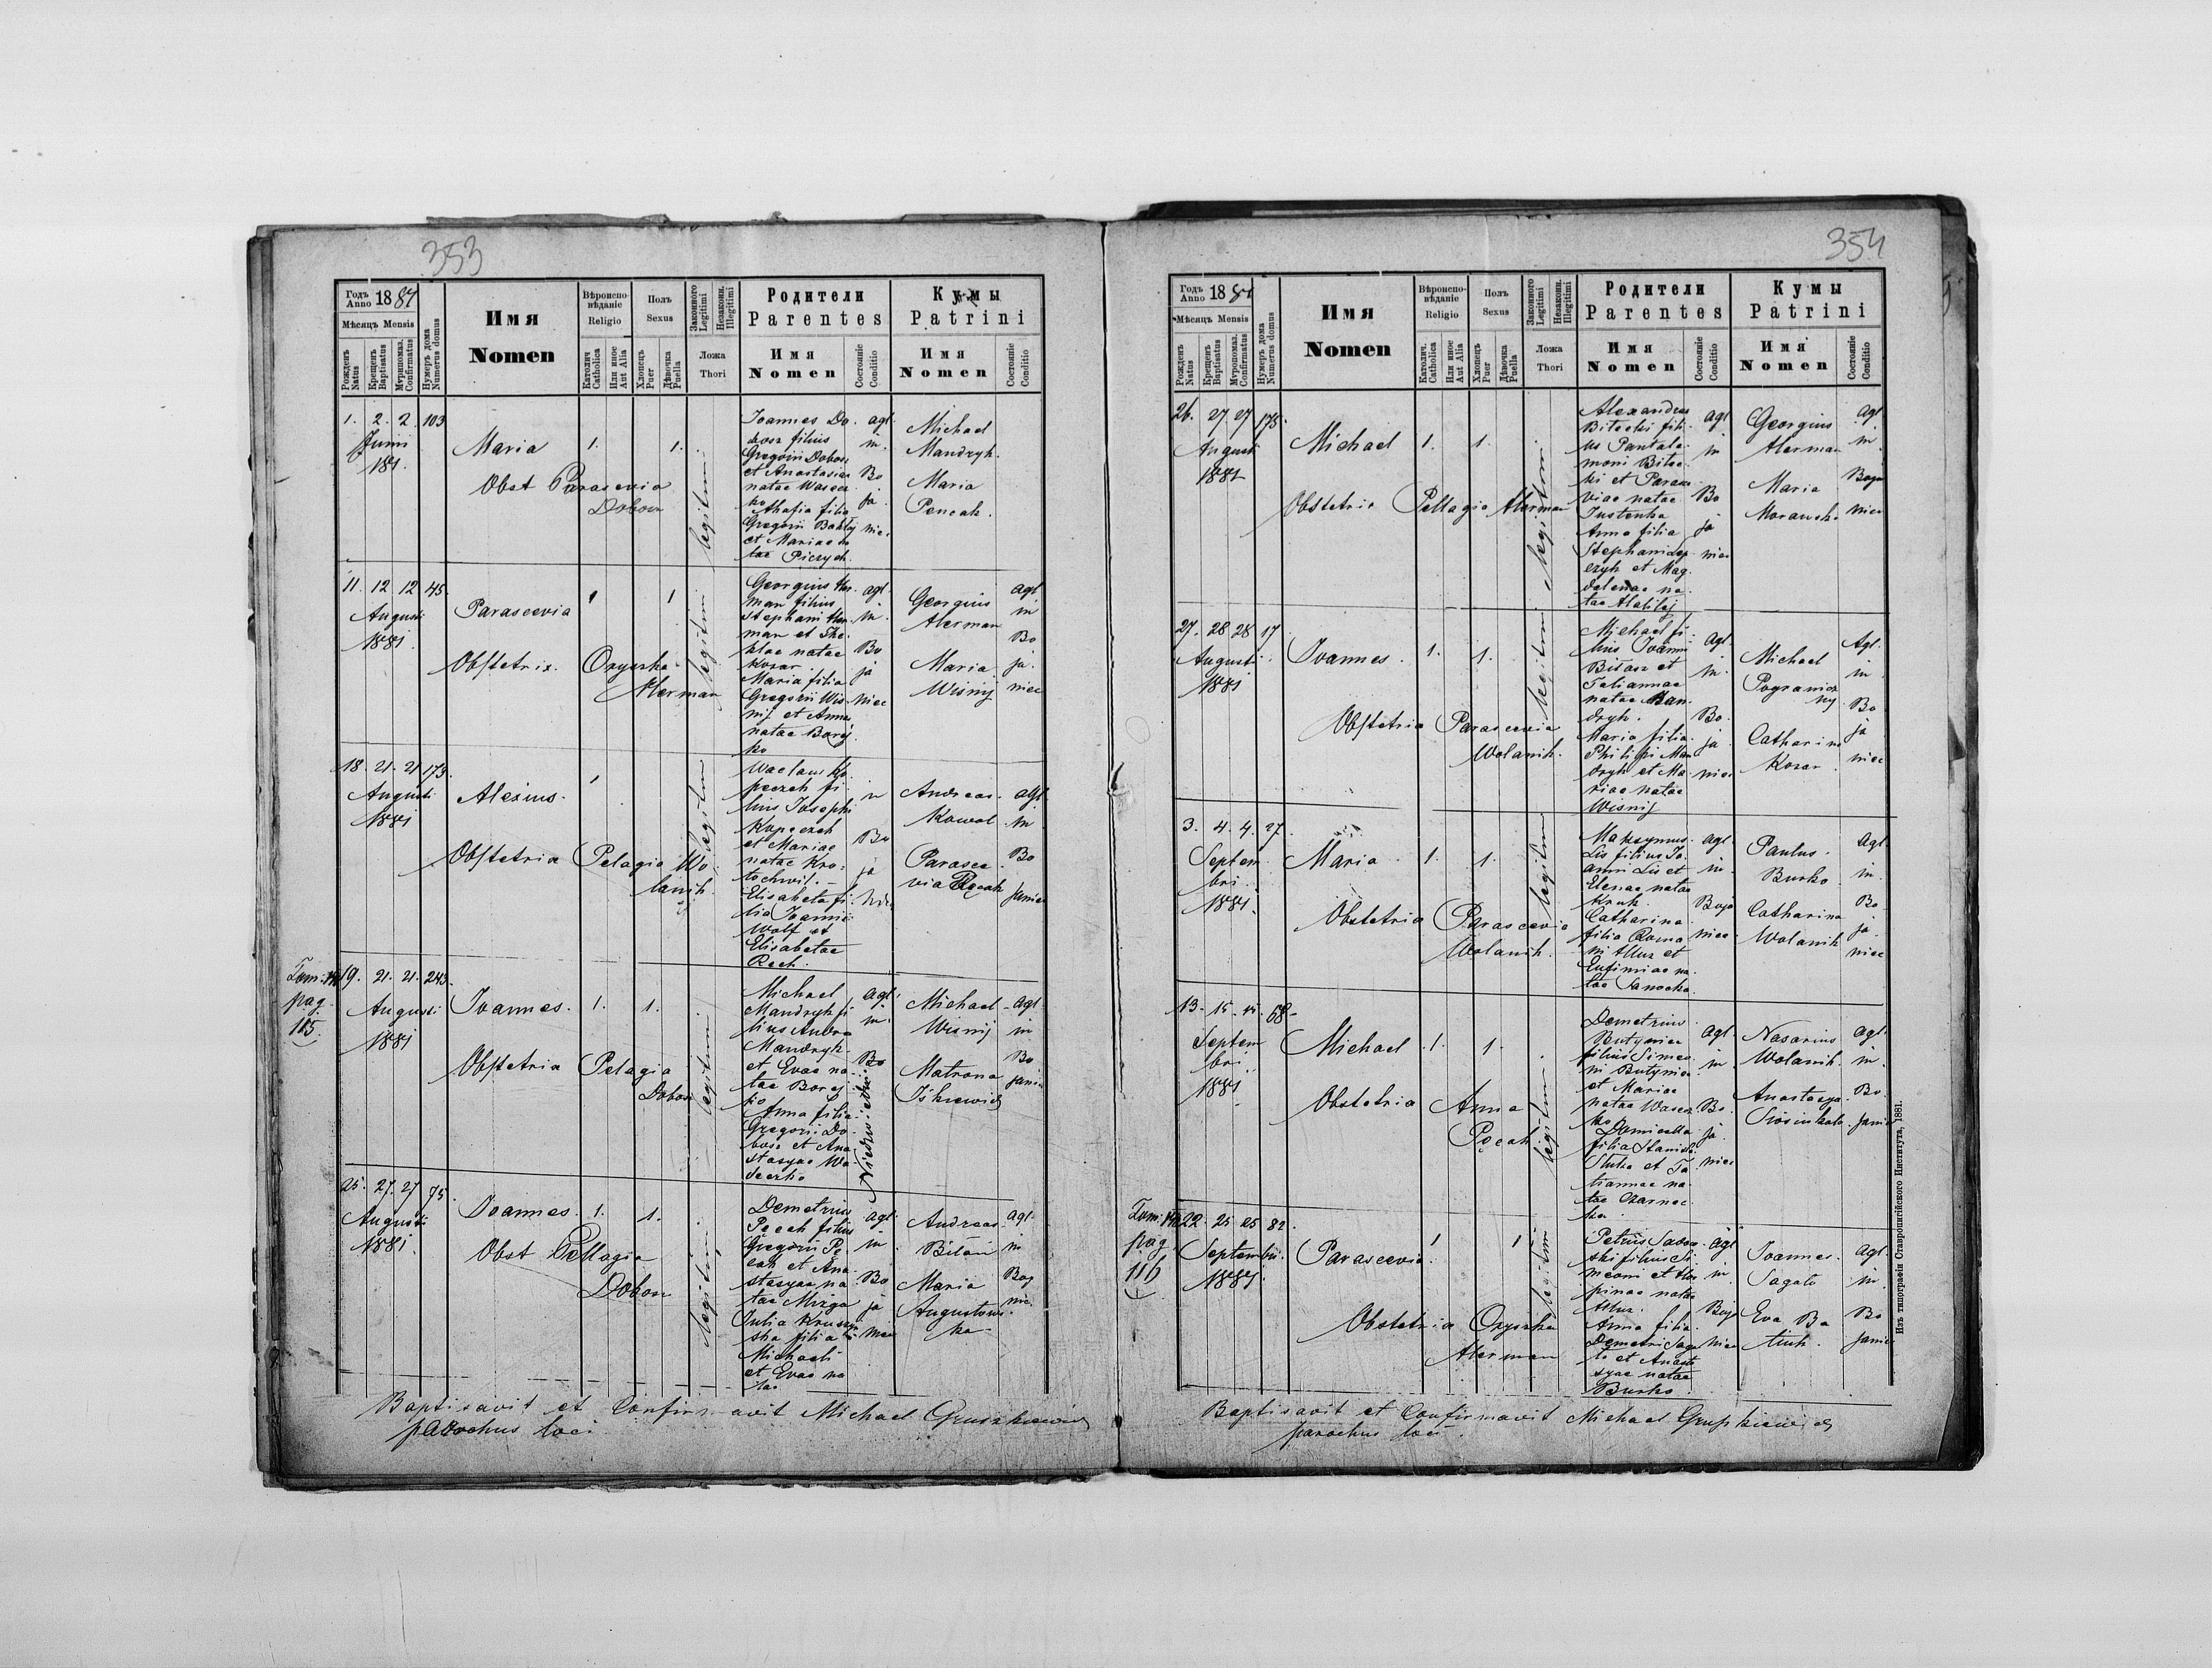 353
Годъ Anno 1881
Мѣсяцъ Mensis
Рожденъ Natus
Крещенъ Baptisatus
Мѵропомаз. Confirmatus
Нумеръ дома Numerus domus
Имя
Nomen
Вѣроиспо-
вѣданіе
Religio
Католич Catholica
Или иное Aut Alia
Полъ
Sexus
Хлопецъ Puer
Дѣвочка Puella
Законного Legitimi
Незаконн. Illegitimi
Ложа
Thori
Родители
Parentes
Имя
Nomen
Состояніе Conditio
Кумы
Patrini
Имя
Nomen
Состояніе Conditio
1. 2. 2. 103
Junii
1881.
Maria
1.
1.
Obst Parascevia
Dobosz
legitimi
Joannes Do
bosz filius
Gregorii Dobosz
et Anastasiae
natae Wasecz
ko
Ahafia filia
Gregorii Baktaj
et Mariae na
tae Piczych.
agl
in.
Bo
ja
niec
Michael
Mandryk.
Maria
Pencak.
11. 12 12 45.
Augusti
1881.
Parascevia
1
1
Obstetrix. Oryszka
Herman
legitimi
Georgius Her
man filius
Stephani Her
man et The
klae natae
Kozar
Maria filia
Gregorii Wis
nij et Anna
natae Borej
ko
agl.
in.
Bo
ja
niec
Georgius
Herman
Maria
Wisnij
agl
in
Bo
ja.
niec
18. 21. 21 173.
Augusti
1881
Alexius.
1
Obstetrix Pelagia Wo
lanik.
legitimi
Waclaus Ko
peczek fi
lius Josephi
Kopeczek
et Mariae
natae Kro
tochwil.
Elisabeta fi
lia Joannis
Wolf et
Elisabetae
Rech.
Bo
ja
Andreas
Kowal
Parasce
via Pęcak
agl
in
Bo
janiec
Tom. VII
pag.
115.
19. 21. 21. 243.
Augusti
1881
Joannes.
1.
1.
Obstetrix Pelagia
Dobosz
legitimi
Michael
Mandryk fi
lius Andrea
Mandryk
et Evae na
tae Borej
ko
Anna filia
Gregorii Do
bosz et Ana
stasyae Wa
seczko
agl.
in.
Bo
Michael
Wisnij
Matrona
Iśkiewicz
agl
in
Bo
janiec
25. 27. 27 75.
Augusti
1881.
Joannes.
1.
1.
Obst Pellagia
Dobosz
legitimi
Demetrius
Pęcak filius
Gregorii Pę
cak et Ana
stasyae na
tae Mizga
Julia Kruszyń
ska filia
Michaeli
et Evae na
tae
agl
in
Bo
ja
niec
Andreas
Bilań
Maria
Augustows
ka
agl.
in
Boj
nic.
Baptisavit et Confirmavit Michael Gruszkiewicz
parochus loci
354
Годъ Anno 1881
Мѣсяцъ Mensis
Рожденъ Natus
Крещенъ Baptisatus
Мѵропомаз. Confirmatus
Нумеръ дома Numerus domus
Имя
Nomen
Вѣроиспо-
вѣданіе
Religio
Католич. Catholica
Или иное Aut Alia
Полъ
Sexus
Хлопецъ Puer
Дѣвочка Puella
Законного Legitimi
Незаконн. Illegitimi
Ложа
Thori
Родители
Parentes
Имя
Nomen
Состояніе Conditio
Кумы
Patrini
Имя
Nomen
Состояніе Conditio
26. 27 27 178.
Augusti
1881
Michael
1.
1.
Obstetrix Pellagia Herman
legitimi
Alexandres
Bilecki fili
us Pantale
moni Bilec
ki et Parasce
viae natae
Justenka
Anna filia
Stephani Lep
czyk et Mag
dalenae na
tae Hlatkij
agl
in
Bo
ja
niec
Georgius
Herman
Maria
Morawska
agl
in
Boja
niec
27. 28 28 17
Augusti
1881
Joannes.
1.
1.
Obstetrix Parascevia
Wolanik.
legitimi
Michael fi
lius Joanni
Bitosz et
Tatiannae
natae Man
dryk.
Maria filia
Philippi Man
dryk et Ma
riae natae
Wisnij
agl
in.
Bo
ja
niec
Michael
Pogranicz
ny
Catharina
Kozar
Agl.
in
Bo
ja
niec
3. 4. 4. 27.
Septem
bri
1881.
Maria
1.
1.
Obstetrix Parascevia
Wolanik.
legitimi
Maksymus
Lis filius Jo
anni Lis et
Elenae natae
Kruk.
Catharina
filia Roma
ni Huz et
Eufimiae na
tae Sanocka.
agl.
in
Boja
niec
Paulus.
Burko
Catharina
Wolanik
agl.
in.
Bo
ja
niec
13. 15. 15. 68.
Septem
bri.
1881
Michael
1.
1.
Obstetrix Anna
Pęcak
legitimi
Demetrius
Butyniec
filius Simeo
ni Butyniec
et Mariae
natae Wasecz
ko
Domicella
filia Stanisl.
et Ta
tiannae na
tae Czarnec
ka.
agl.
in
Bo
ja
niec
Nasarius
Wolanik.
Anastasya
agl.
in.
Bo
janiec
Tom. VII
pag.
116
22. 25 25 82.
Septembri.
1881.
Parascevia
1
1
Obstetrix Oryszka
Herman
legitimi
Petrus Sawa
ski filius Si
meoni et Aga
pinae natae
Huz.
Anna filia
Demetri Saga
to et Anasta
syae natae
Burko
agl
in
Boja
niec
Joannes.
Sagato
Eva Ba
tiuk.
agl.
in.
Bo
janiec
Baptisavit et Confirmavit Michael Gruszkiewicz
parochus loci.
Изъ типографіи Ставропигійского Института, 1881.